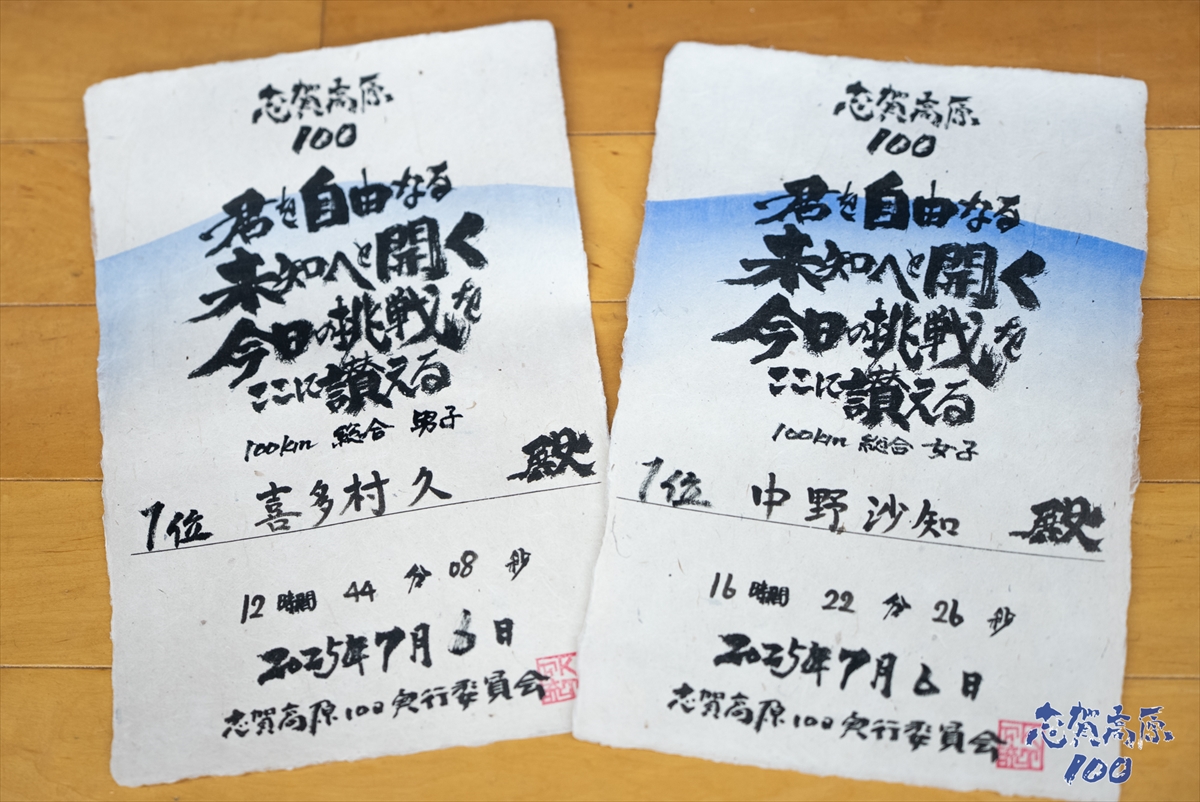 志賀高原
100
君を自由なる
未知へと開く
今日の挑戦を
ここに讃える
100km 総合 男子
1位 喜多村久 殿
12時間44分08秒
2025年7月6日
志賀高原100実行委員会
志賀高原
100
君を自由なる
未知へと開く
今日の挑戦を
ここに讃える
100km 総合 女子
1位 中野沙知 殿
16時間22分26秒
2025年7月6日
志賀高原100実行委員会
志賀高原
100